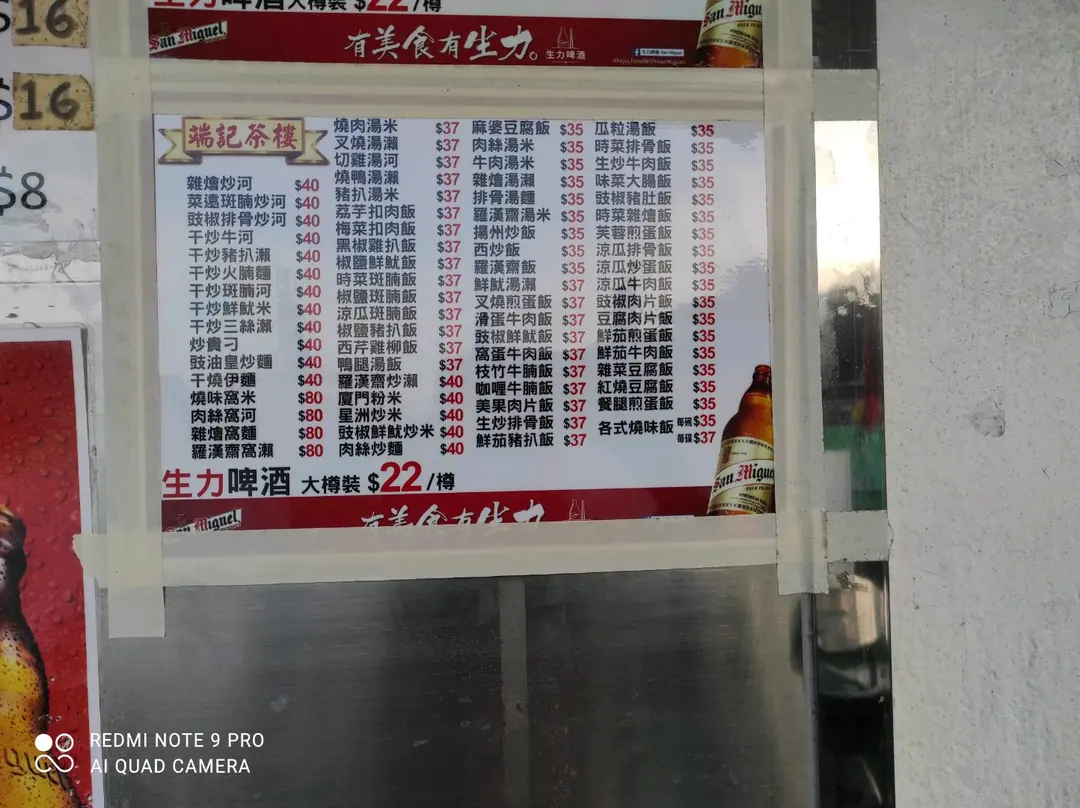 $16
生力啤酒大樽裝 $22/樽
San Miguel
有美食有生力。
生力啤酒
生力啤酒 San Miguel
#EnjoyFoodWithSanMiguel
$16
$8
端記茶樓
雜燴炒河 $40
菜遠斑腩炒河 $40
豉椒排骨炒河 $40
干炒牛河 $40
干炒豬扒瀨 $40
干炒火腩麵 $40
干炒斑腩河 $40
干炒鮮魷米 $40
干炒三絲瀨 $40
炒貴刁 $40
豉油皇炒麵 $40
干燒伊麵 $40
燒味窩米 $80
肉絲窩河 $80
雜燴窩麵 $80
羅漢齋窩瀨 $80
燒肉湯米 $37
叉燒湯瀨 $37
切雞湯河 $37
燒鴨湯瀨 $37
豬扒湯米 $37
荔芋扣肉飯 $37
梅菜扣肉飯 $37
黑椒雞扒飯 $37
椒鹽鮮魷飯 $37
時菜斑腩飯 $37
椒鹽斑腩飯 $37
涼瓜斑腩飯 $37
椒鹽豬扒飯 $37
西芹雞柳飯 $37
鴨腿湯飯 $37
羅漢齋炒瀨 $40
廈門粉米 $40
星洲炒米 $40
豉椒鮮魷炒米 $40
肉絲炒麵 $40
麻婆豆腐飯 $35
肉絲湯米 $35
牛肉湯米 $35
雜燴湯瀨 $35
排骨湯麵 $35
羅漢齋湯米 $35
揚州炒飯 $35
西炒飯 $35
羅漢齋飯 $35
鮮魷湯瀨 $37
叉燒煎蛋飯 $37
滑蛋牛肉飯 $37
豉椒鮮魷飯 $37
窩蛋牛肉飯 $37
枝竹牛腩飯 $37
咖喱牛腩飯 $37
美果肉片飯 $37
生炒排骨飯 $37
鮮茄豬扒飯 $37
瓜粒湯飯 $35
時菜排骨飯 $35
生炒牛肉飯 $35
味菜大腸飯 $35
豉椒豬肚飯 $35
時菜雜燴飯 $35
芙蓉蛋飯 $35
涼瓜排骨飯 $35
涼瓜炒蛋飯 $35
涼瓜牛肉飯 $35
豉椒肉片飯 $35
豆腐肉片飯 $35
鮮茄煎蛋飯 $35
鮮茄牛肉飯 $35
雜菜豆腐飯 $35
紅燒豆腐飯 $35
餐腿煎蛋飯 $35
各式燒味飯 每碗 $35
每碟 $37
生力啤酒 大樽裝 $22/樽
San Miguel
有美食有生力
San Miguel
REDMI NOTE 9 PRO
AI QUAD CAMERA